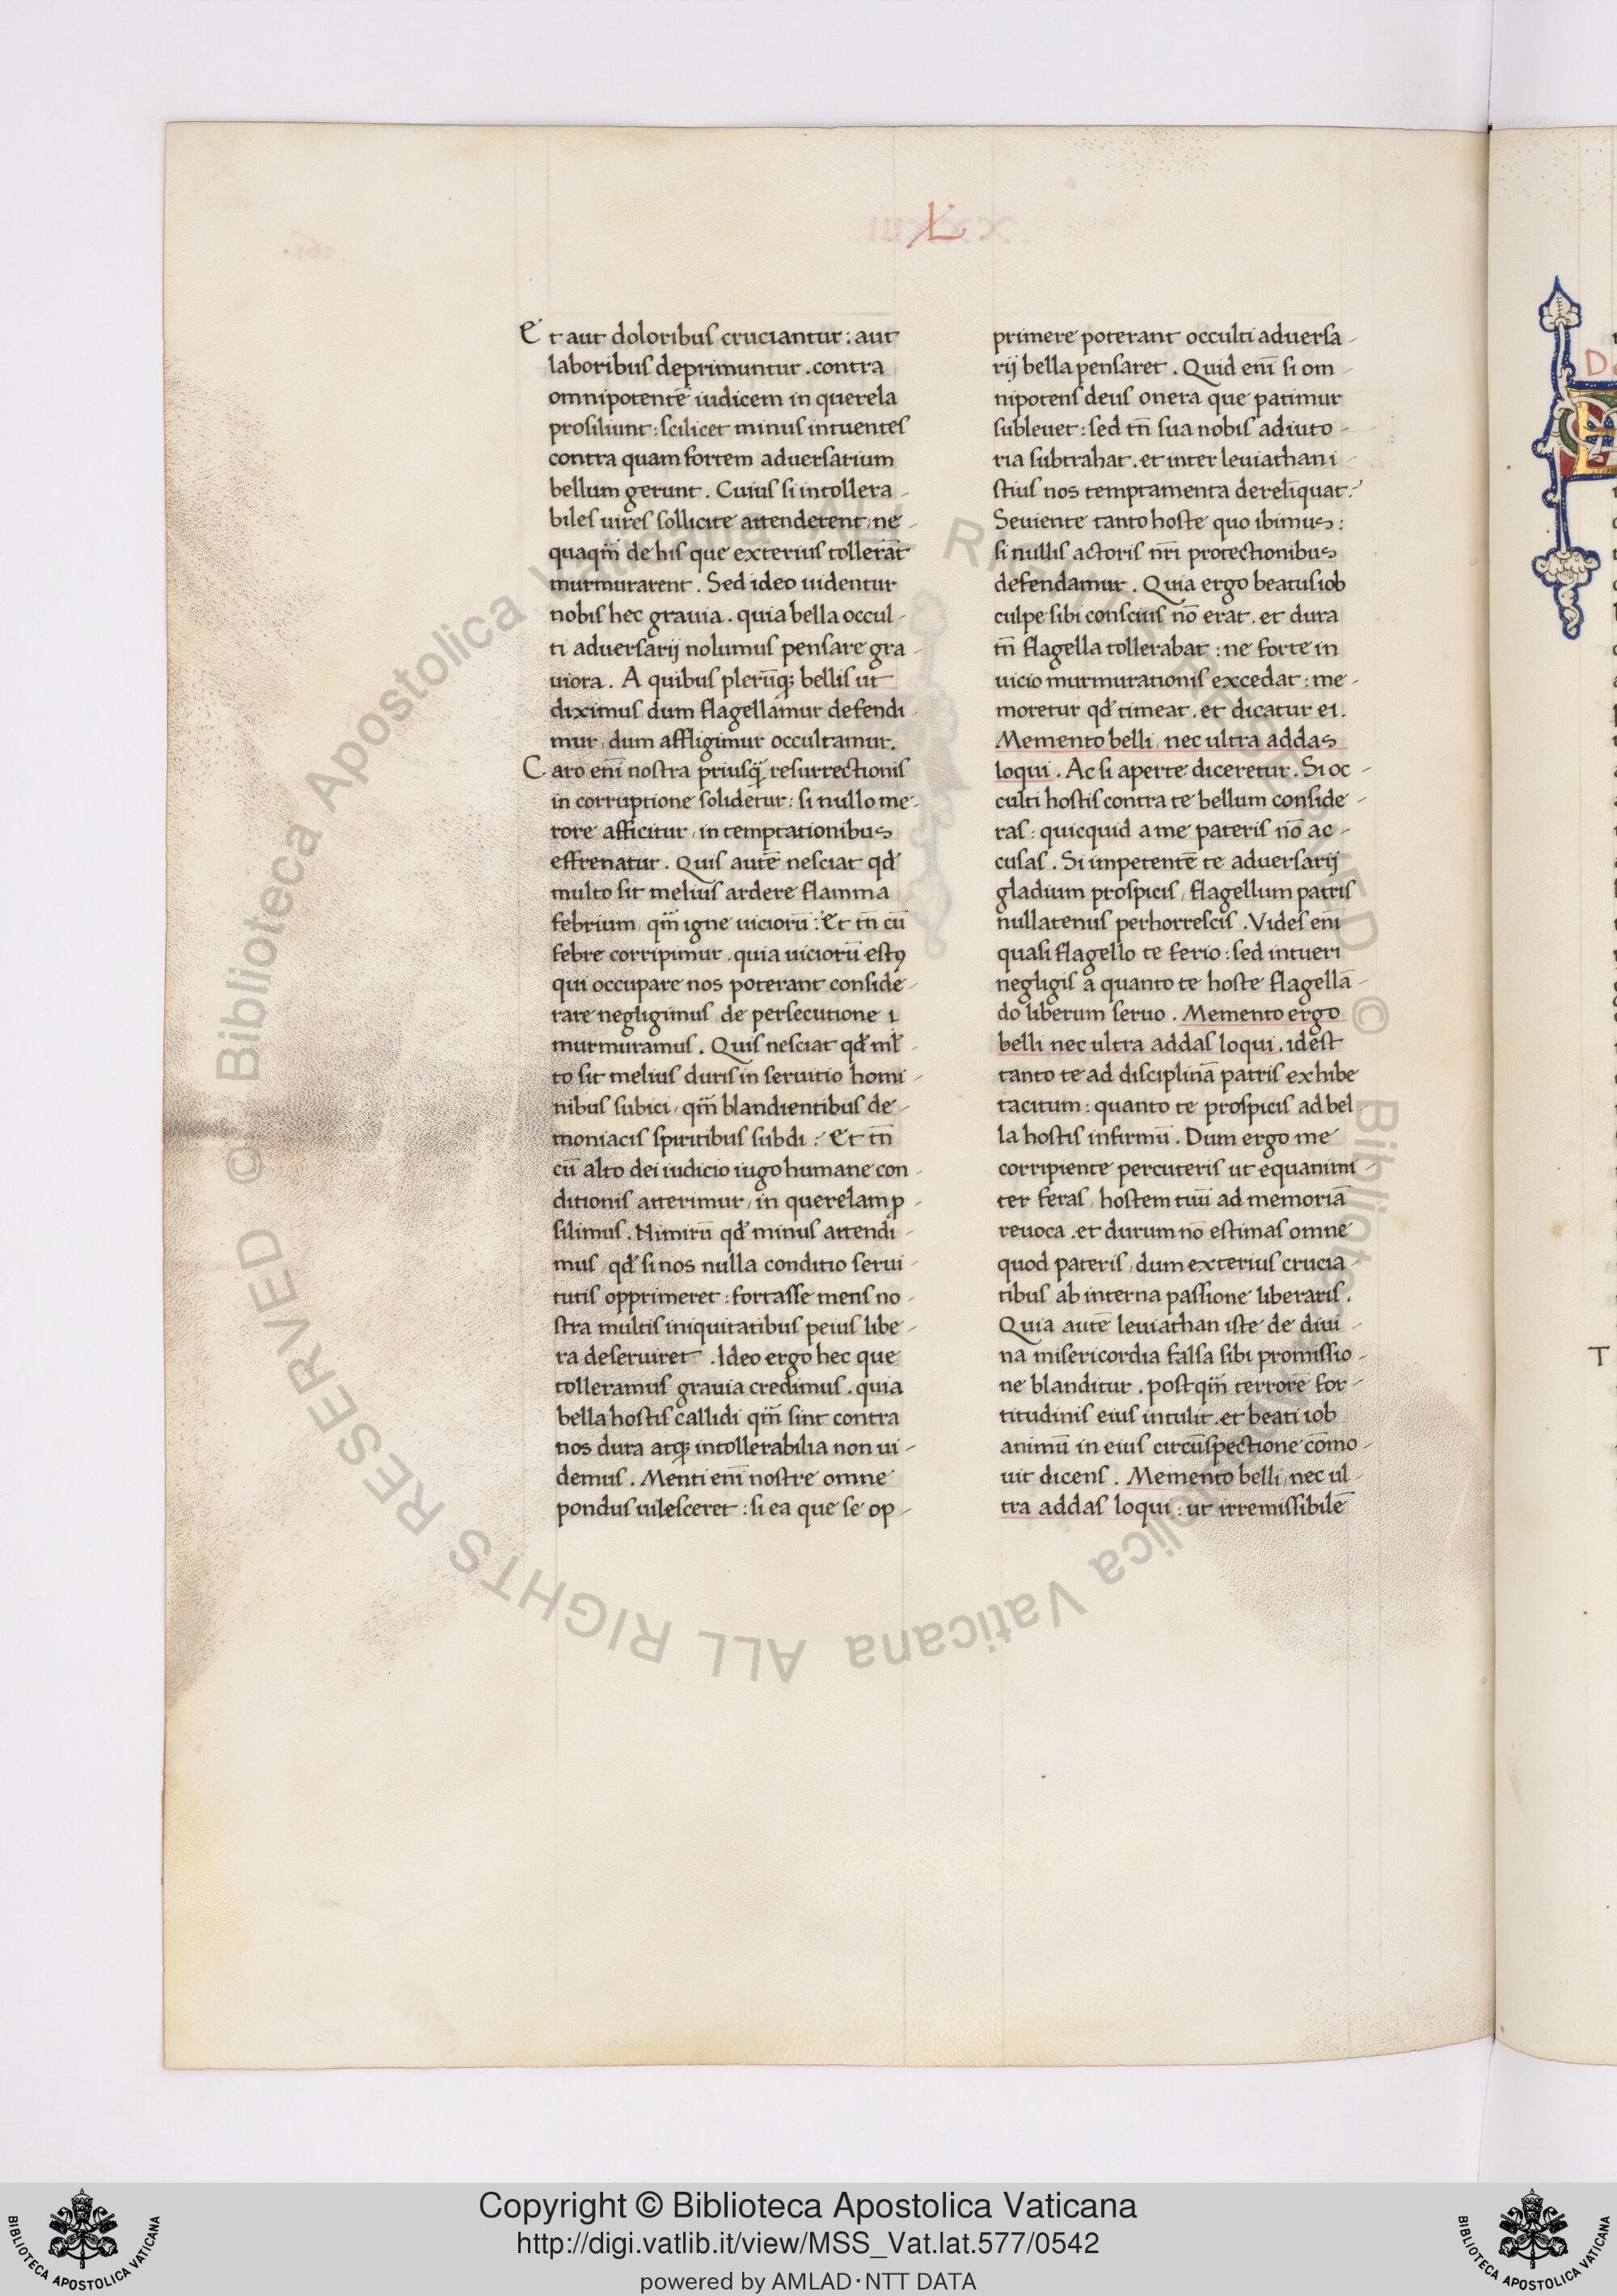 L
Et aut doloribus cruciantur: aut
laboribus deprimuntur. contra
omnipotentē iudicem in querela
prosiliunt: scilicet minus intuentes
contra quam fortem aduersarium
bellum gerunt. Cuius si intollera-
biles uires sollicite attenderent, ne-
quaqm̄ de his que exterius tollerāt
murmurarent. Sed ideo uidentur
nobis hec grauia. quia bella occul-
ti aduersarij nolumus pensare gra-
uiora. A quibus plerūq; bellis ut
diximus dum flagellamur defendi-
mur, dum affligimur occultamur.
Caro enī nostra priusq̄ resurrectionis
in corruptione solidetur: si nullo me-
rore afficitur, in temptationibus
effrenatur. Quis autē nesciat qd̄
multo sit melius ardere flamma
febrium, qm̄ igne uiciorū: Et tn̄ cū
febre corripimur. quia uiciorū estꝰ
qui occupare nos poterant conside-
rare negligimus de persecutione ı
murmuramus. Quis nesciat qd̄ ml̄-
to sit melius duris in seruitio homi-
nibus subici, qm̄ blandientibus de-
moniacis spiritibus subdi: Et tn̄
cū alto dei iudicio iugo humane con-
ditionis atterimur, in querelam ꝓ-
silimus. Nimirū qd̄ minus attendi-
mus, qd̄ si nos nulla conditio serui-
tutis opprimeret: fortasse mens no-
stra multis iniquitatibus peius libe-
ra deseruiret. Ideo ergo hec que
tolleramus grauia credimus. quia
bella hostis callidi qm̄ sint contra
nos dura atq; intollerabilia non ui-
demus. Menti enī nostre omne
pondus uilesceret: si ea que se op-
primere poterant occulti aduersa-
rij bella pensaret. Quid enī si om-
nipotens deus onera que patimur
subleuet: sed tn̄ sua nobis adiuto-
ria subtrahat. et inter leuiathan i-
stius nos temptamenta derelīquat:
Seuiente tanto hoste quo ibimus:
si nullis actoris nr̄i protectionibus
defendamur. Quia ergo beatus iob
culpe sibi conscius nō erat. et dura
tn̄ flagella tollerabat: ne forte in
uicio murmurationis excedat: me-
moretur qd̄ timeat. et dicatur ei.
Memento belli, nec ultra addas
loqui. Ac si aperte diceretur. Si oc-
culti hostis contra te bellum conside-
ras: quicquid a me pateris nō ac-
cusas. Si impetentē te aduersarij
gladium prospicis, flagellum patris
nullatenus perhorrescis. Vides enī
quasi flagello te ferio: sed intueri
negligis a quanto te hoste flagellā-
do liberum seruo. Memento ergo
belli nec ultra addas loqui. idest
tanto te ad disciplinā patris exhibe
tacitum: quanto te prospicis ad bel
la hostis infirmū. Dum ergo me
corripiente percuteris ut equanimi-
ter feras, hostem tuū ad memoriā
reuoca. et durum nō estimas omne
quod pateris, dum exterius crucia-
tibus ab interna passione liberaris.
Quia autē leuiathan iste de diui-
na misericordia falsa sibi promissio-
ne blanditur. postqm̄ terrorē for-
titudinis eius intulit. et beati iob
animū in eius circūspectione cōmo-
uit dicens. Memento belli, nec ul-
tra addas loqui: ut irremissibilē
T
© Biblioteca Apostolica Vaticana ALL RIGHTS RESERVED
© Biblioteca Apostolica Vaticana ALL RIGHTS RESERVED
Copyright © Biblioteca Apostolica Vaticana
http://digi.vatlib.it/view/MSS_Vat.lat.577/0542
powered by AMLAD·NTT DATA
BIBLIOTECA APOSTOLICA VATICANA
BIBLIOTECA APOSTOLICA VATICANA